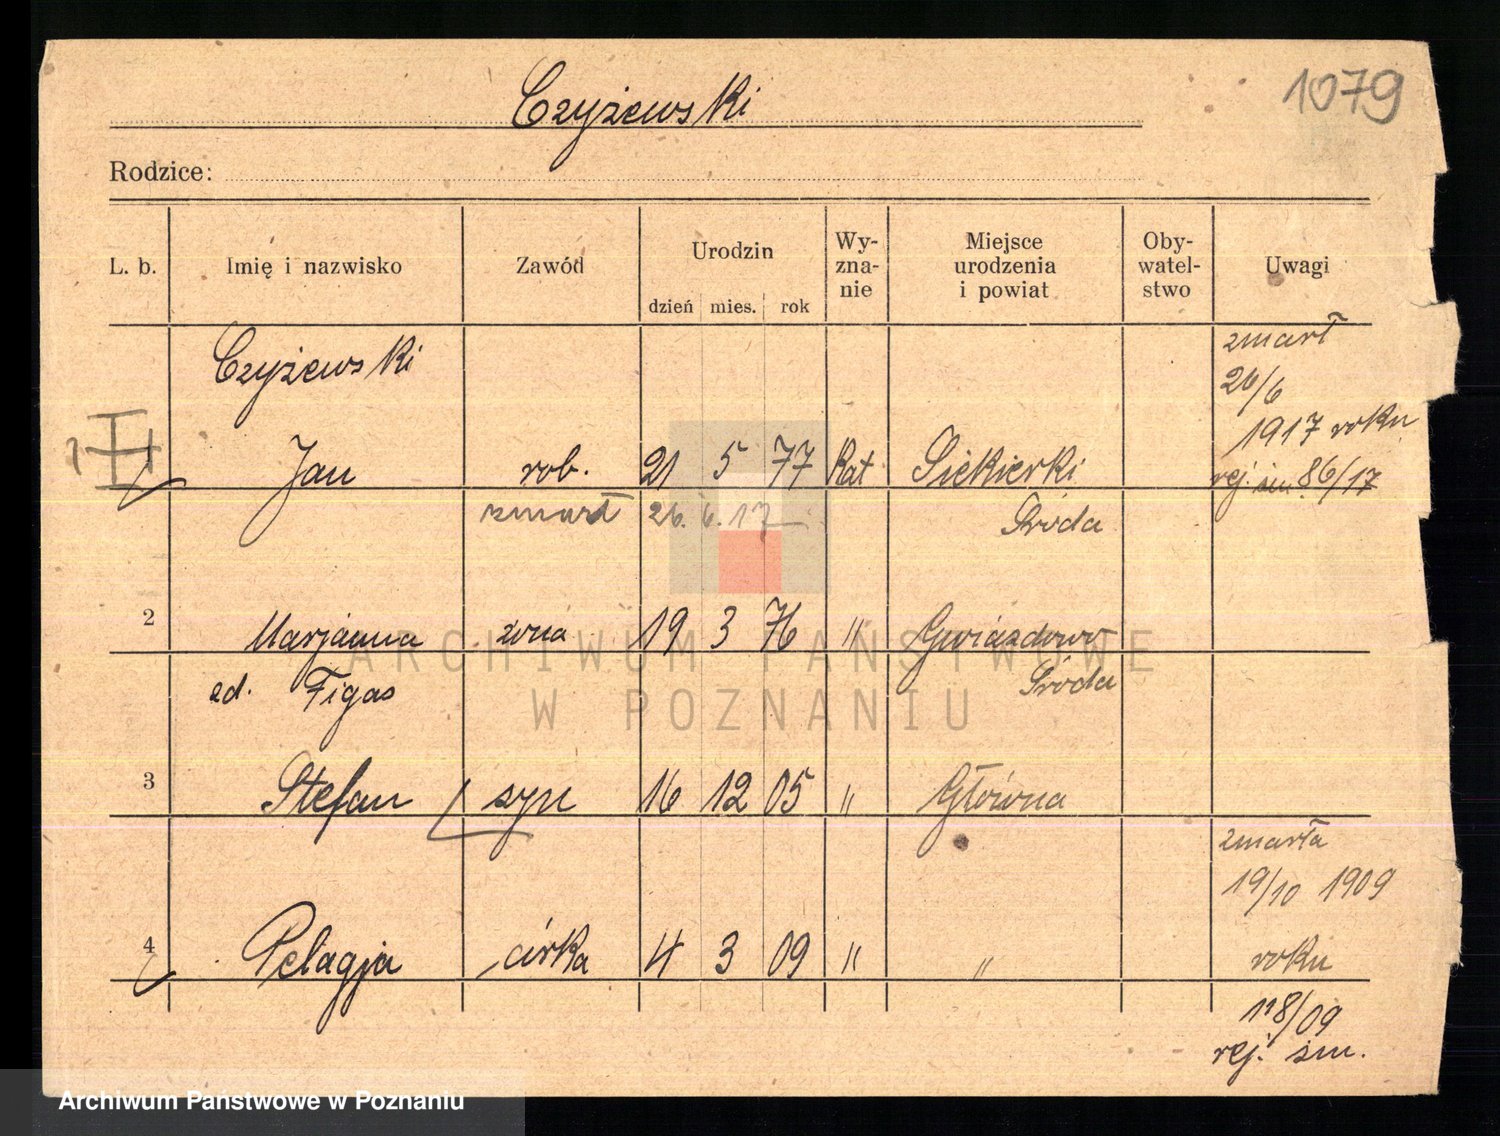 Czyżewski
1079
Rodzice:
L. b. Imię i nazwisko Zawód Urodzin dzień mies. rok Wy-zna-nie Miejsce urodzenia i powiat Oby-watel-stwo Uwagi
Czyżewski zmarł
26/6
1917 roku
1 Jan rob. 21 5 77 Kat Siekierki rej. śm. 86/17
zmarł 26. 6. 17 Środa
2 Marjanna żona 19 3 76 " Gwiazdowo
zd. Figas Środa
3 Stefan syn 16 12 05 " Główna
zmarła
19/10 1909
4 Pelagja córka 4 3 09 " " roku
118/09
rej. śm.
ARCHIWUM PAŃSTWOWE
W POZNANIU
Archiwum Państwowe w Poznaniu